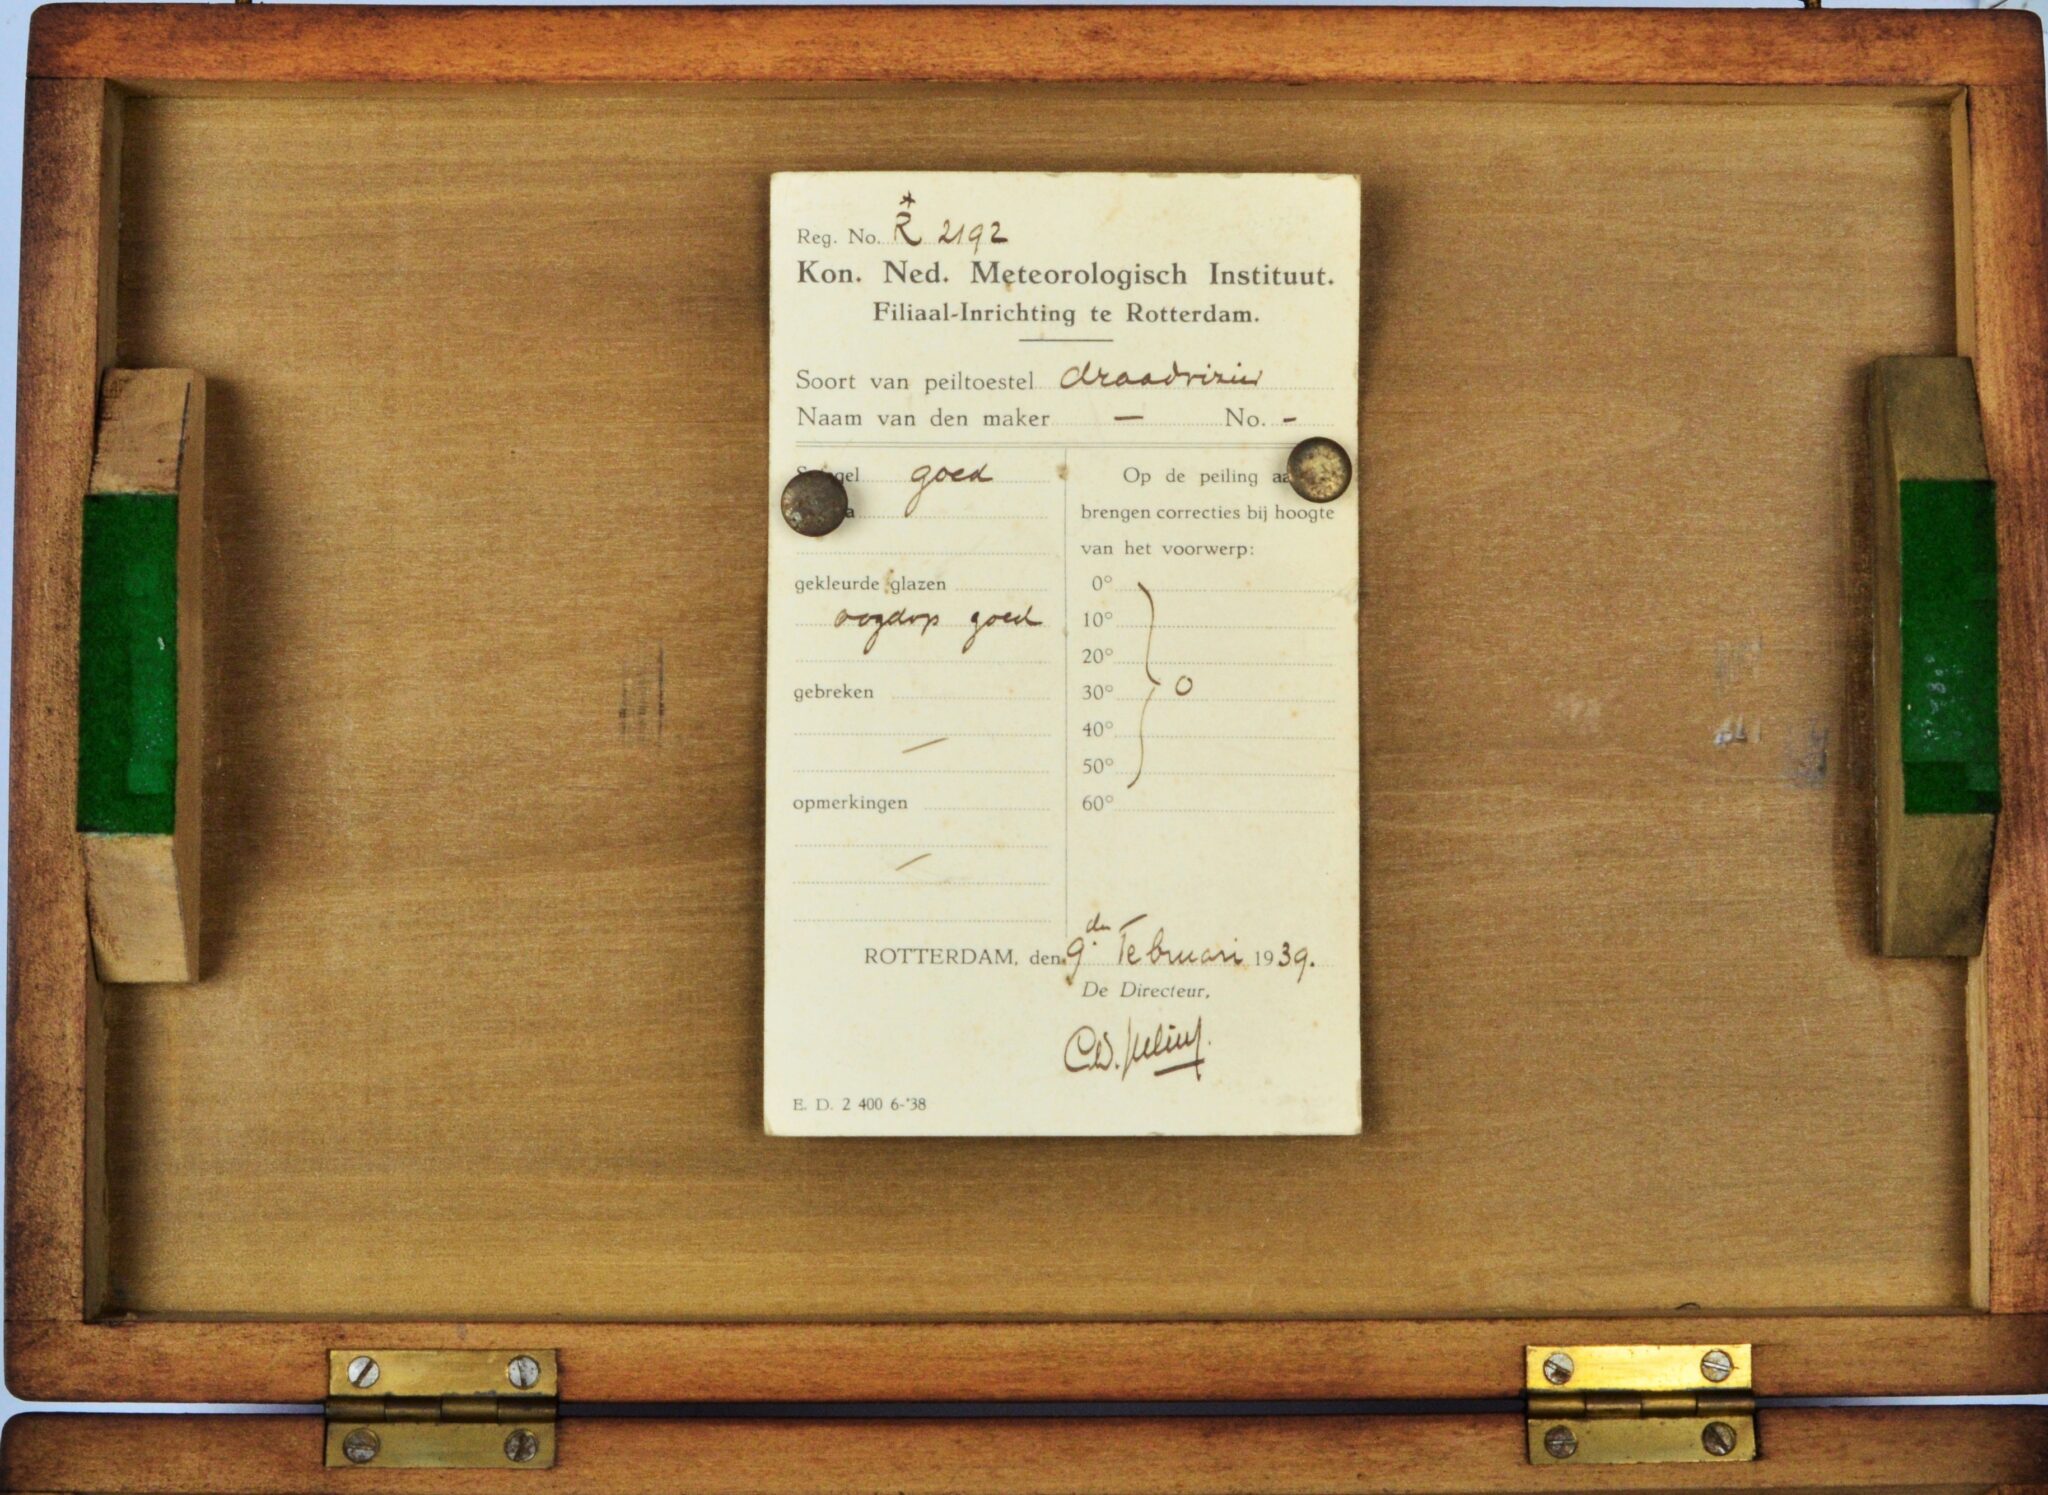 Reg. No. R 2192
Kon. Ned. Meteorologisch Instituut.
Filiaal-Inrichting te Rotterdam.
Soort van peiltoestel draadvizier
Naam van den maker — No. -
goed
Op de peiling
brengen correcties bij hoogte
van het voorwerp:
gekleurde glazen
oogdop goed
gebreken
—
opmerkingen
—
0°
10°
20°
30° 0
40°
50°
60°
ROTTERDAM, den 9den Februari 1939.
De Directeur,
E. D. 2 400 6-'38